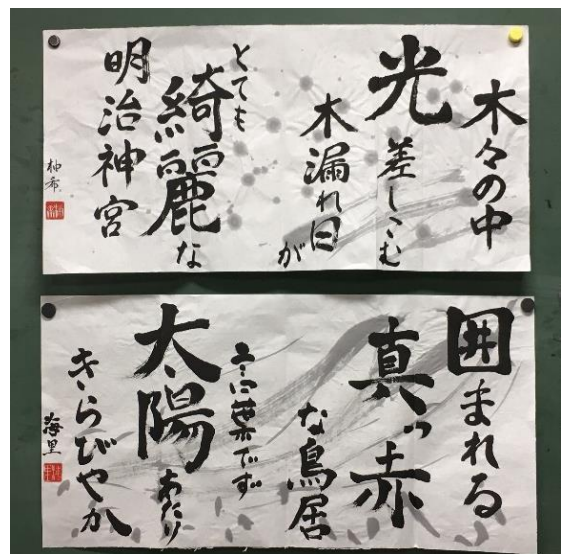 木々の中
光差しこむ
木漏れ日が
とても
綺麗な
明治神宮
柚希
囲まれる
真っ赤
な鳥居
言葉です
太陽あたり
きらびやか
海里